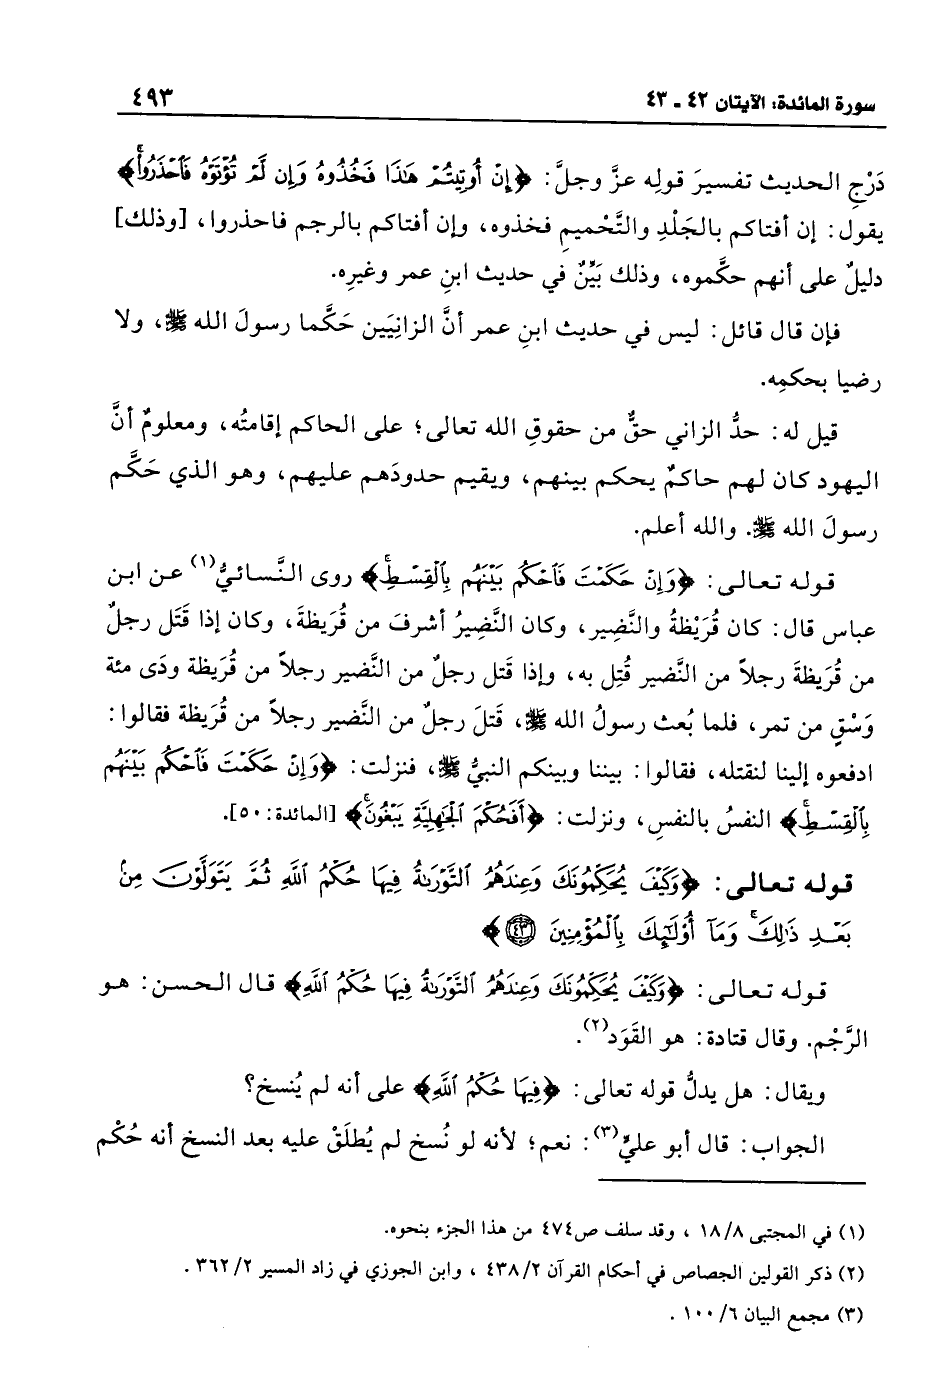 سورة المائدة: الآيتان ٤٢ - ٤٣
٤٩٣
دَرْجِ الحديث تفسيرَ قولِه عزَّ وجلَّ: ﴿إِنْ أُوتِيتُمْ هَٰذَا فَخُذُوهُ وَإِن لَّمْ تُؤْتَوْهُ فَاحْذَرُواْۚ﴾
يقول: إن أفتاكم بالجَلْدِ والتَّحْميمِ فخذوه، وإن أفتاكم بالرجم فاحذروا، [وذلك]
دليلٌ على أنهم حكَّموه، وذلك بَيِّنٌ في حديث ابنِ عمر وغيرِه.
فإن قال قائل: ليس في حديث ابنِ عمر أنَّ الزانِيَين حَكَّما رسولَ الله ﷺ، ولا
رضيا بحكمِه.
قيل له: حدُّ الزاني حقٌّ من حقوقِ الله تعالى؛ على الحاكم إقامتُه، ومعلومٌ أنَّ
اليهود كان لهم حاكمٌ يحكم بينهم، ويقيم حدودَهم عليهم، وهو الذي حَكَّم
رسولَ الله ﷺ. والله أعلم.
قوله تعالى: ﴿وَإِنْ حَكَمْتَ فَاحْكُم بَيْنَهُم بِالْقِسْطِۚ﴾ روى النَّسائيُّ(١) عن ابن
عباس قال: كان قُرَيْظةُ والنَّضِير، وكان النَّضِيرُ أشرفَ من قُريظةَ، وكان إذا قَتَل رجلٌ
من قُرَيظةَ رجلاً من النَّضير قُتِل به، وإذا قَتل رجلٌ من النَّضير رجلاً من قُرَيظة ودَى مئة
وَسْقٍ من تمر، فلما بُعث رسولُ الله ﷺ، قَتلَ رجلٌ من النَّضير رجلاً من قُرَيظة فقالوا:
ادفعوه إلينا لنقتله، فقالوا: بيننا وبينكم النبيُّ ﷺ، فنزلت: ﴿وَإِنْ حَكَمْتَ فَاحْكُم بَيْنَهُم
بِالْقِسْطِۚ﴾ النفسُ بالنفسِ، ونزلت: ﴿أَفَحُكْمَ الْجَاهِلِيَّةِ يَبْغُونَۚ﴾ [المائدة: ٥٠].
قوله تعالى: ﴿وَكَيْفَ يُحَكِّمُونَكَ وَعِندَهُمُ التَّوْرَاةُ فِيهَا حُكْمُ اللَّهِ ثُمَّ يَتَوَلَّوْنَ مِنۢ
بَعْدِ ذَٰلِكَۚ وَمَآ أُوْلَٰٓئِكَ بِالْمُؤْمِنِينَ ٤٣﴾
قوله تعالى: ﴿وَكَيْفَ يُحَكِّمُونَكَ وَعِندَهُمُ التَّوْرَاةُ فِيهَا حُكْمُ اللَّهِ﴾ قال الحسن: هو
الرَّجْم. وقال قتادة: هو القَوَد(٢).
ويقال: هل يدلُّ قوله تعالى: ﴿فِيهَا حُكْمُ اللَّهِ﴾ على أنه لم يُنسخ؟
الجواب: قال أبو عليٍّ(٣): نعم؛ لأنه لو نُسخ لم يُطلَقْ عليه بعد النسخ أنه حُكْم
(١) في المجتبى ١٨/٨ ، وقد سلف ص٤٧٤ من هذا الجزء بنحوه.
(٢) ذكر القولين الجصاص في أحكام القرآن ٤٣٨/٢ ، وابن الجوزي في زاد المسير ٣٦٢/٢ .
(٣) مجمع البيان ١٠٠/٦ .